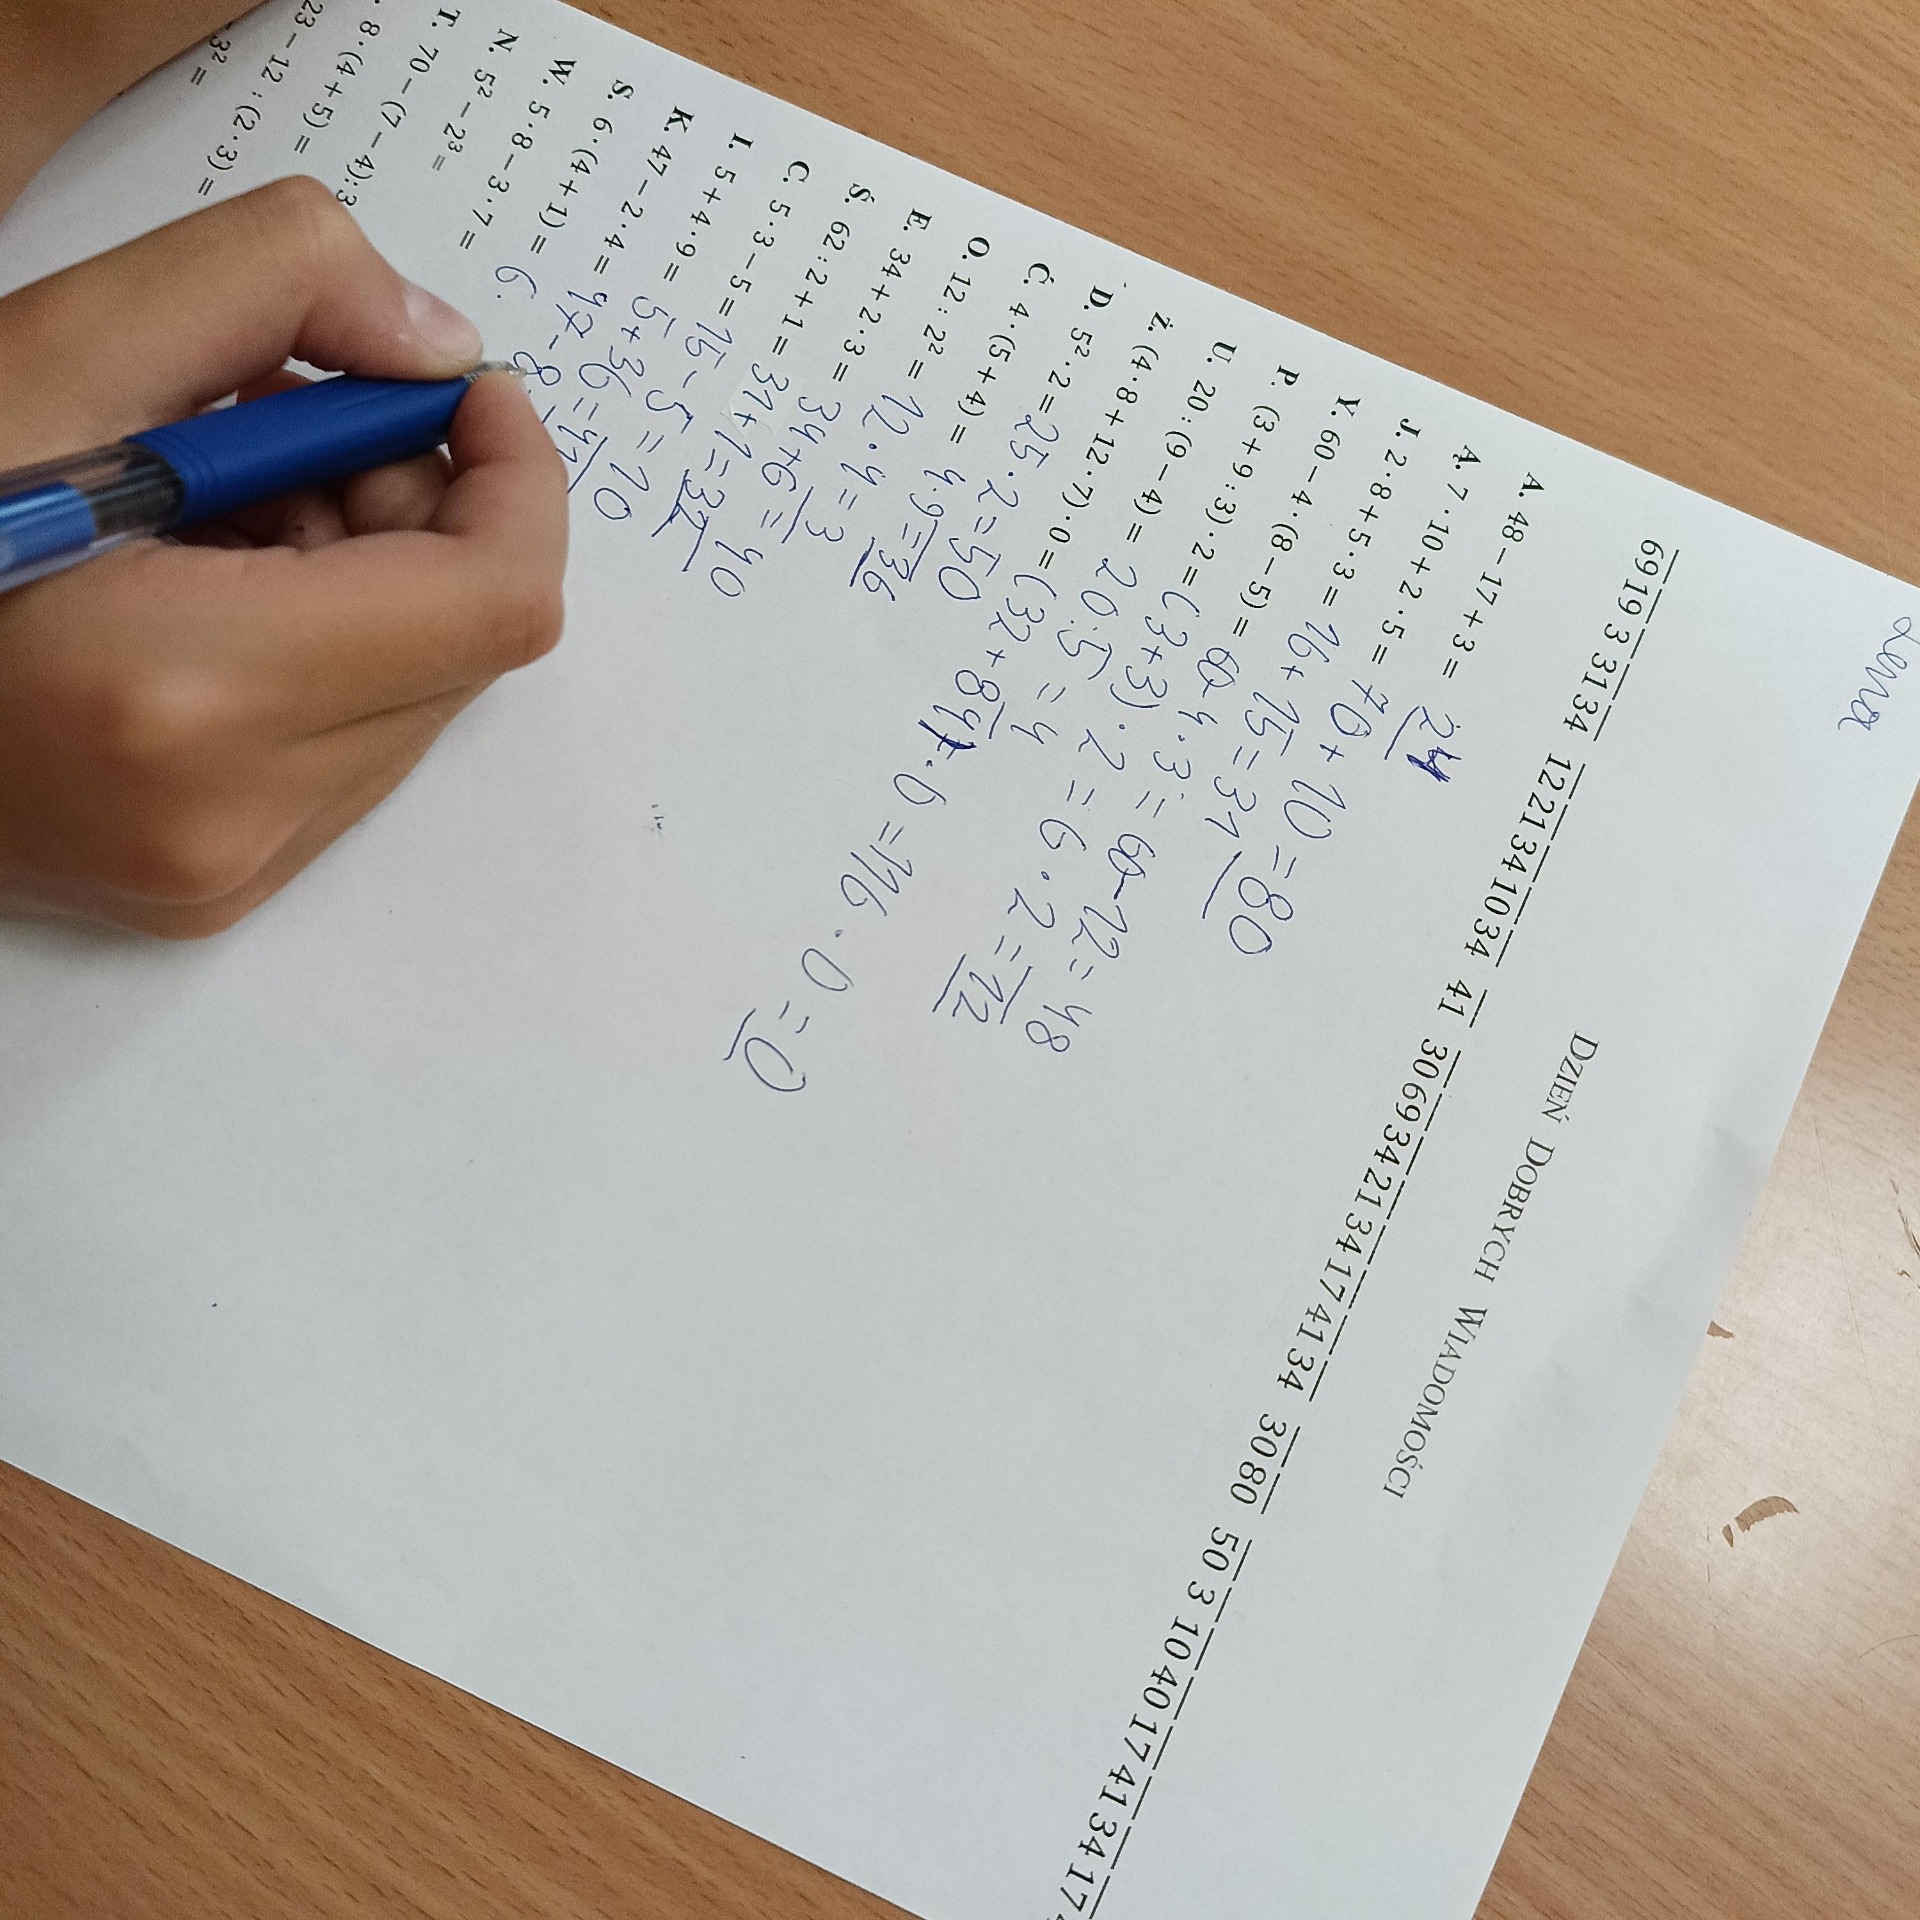 Lena
DZIEŃ DOBRYCH WIADOMOŚCI
69 19 3 31 34 12 21 34 10 34 41 30 69 34 21 34 17 41 34 30 80 50 3 10 40 17 41 34 17
A. 48 − 17 + 3 = 24
Ą. 7 · 10 + 2 · 5 = 70 + 10 = 80
J. 2 · 8 + 5 · 3 = 16 + 15 = 31
Y. 60 − 4 · (8 − 5) = 60 - 4 · 3 = 60 - 12 = 48
P. (3 + 9 : 3) · 2 = (3+3) · 2 = 6 · 2 = 12
U. 20 : (9 − 4) = 20 : 5 = 4
Ż. (4 · 8 + 12 · 7) · 0 = (32 + 84) · 0 = 116 · 0 = 0
D. 5² · 2 = 25 · 2 = 50
Ć. 4 · (5 + 4) = 4 · 9 = 36
O. 12 : 2² = 12 · 4 = 3
E. 34 + 2 · 3 = 34 + 6 = 40
Ś. 62 : 2 + 1 = 31 + 1 = 32
C. 5 · 3 − 5 = 15 - 5 = 10
I. 5 + 4 · 9 = 5 + 36 = 41
K. 47 − 2 · 4 = 47 - 8
S. 6 · (4 + 1) = 6 ·
W. 5 · 8 − 3 · 7 =
N. 5² − 2³ =
T. 70 − (7 − 4) : 3
8 · (4 + 5) =
23 − 12 : (2 · 3) =
3² =